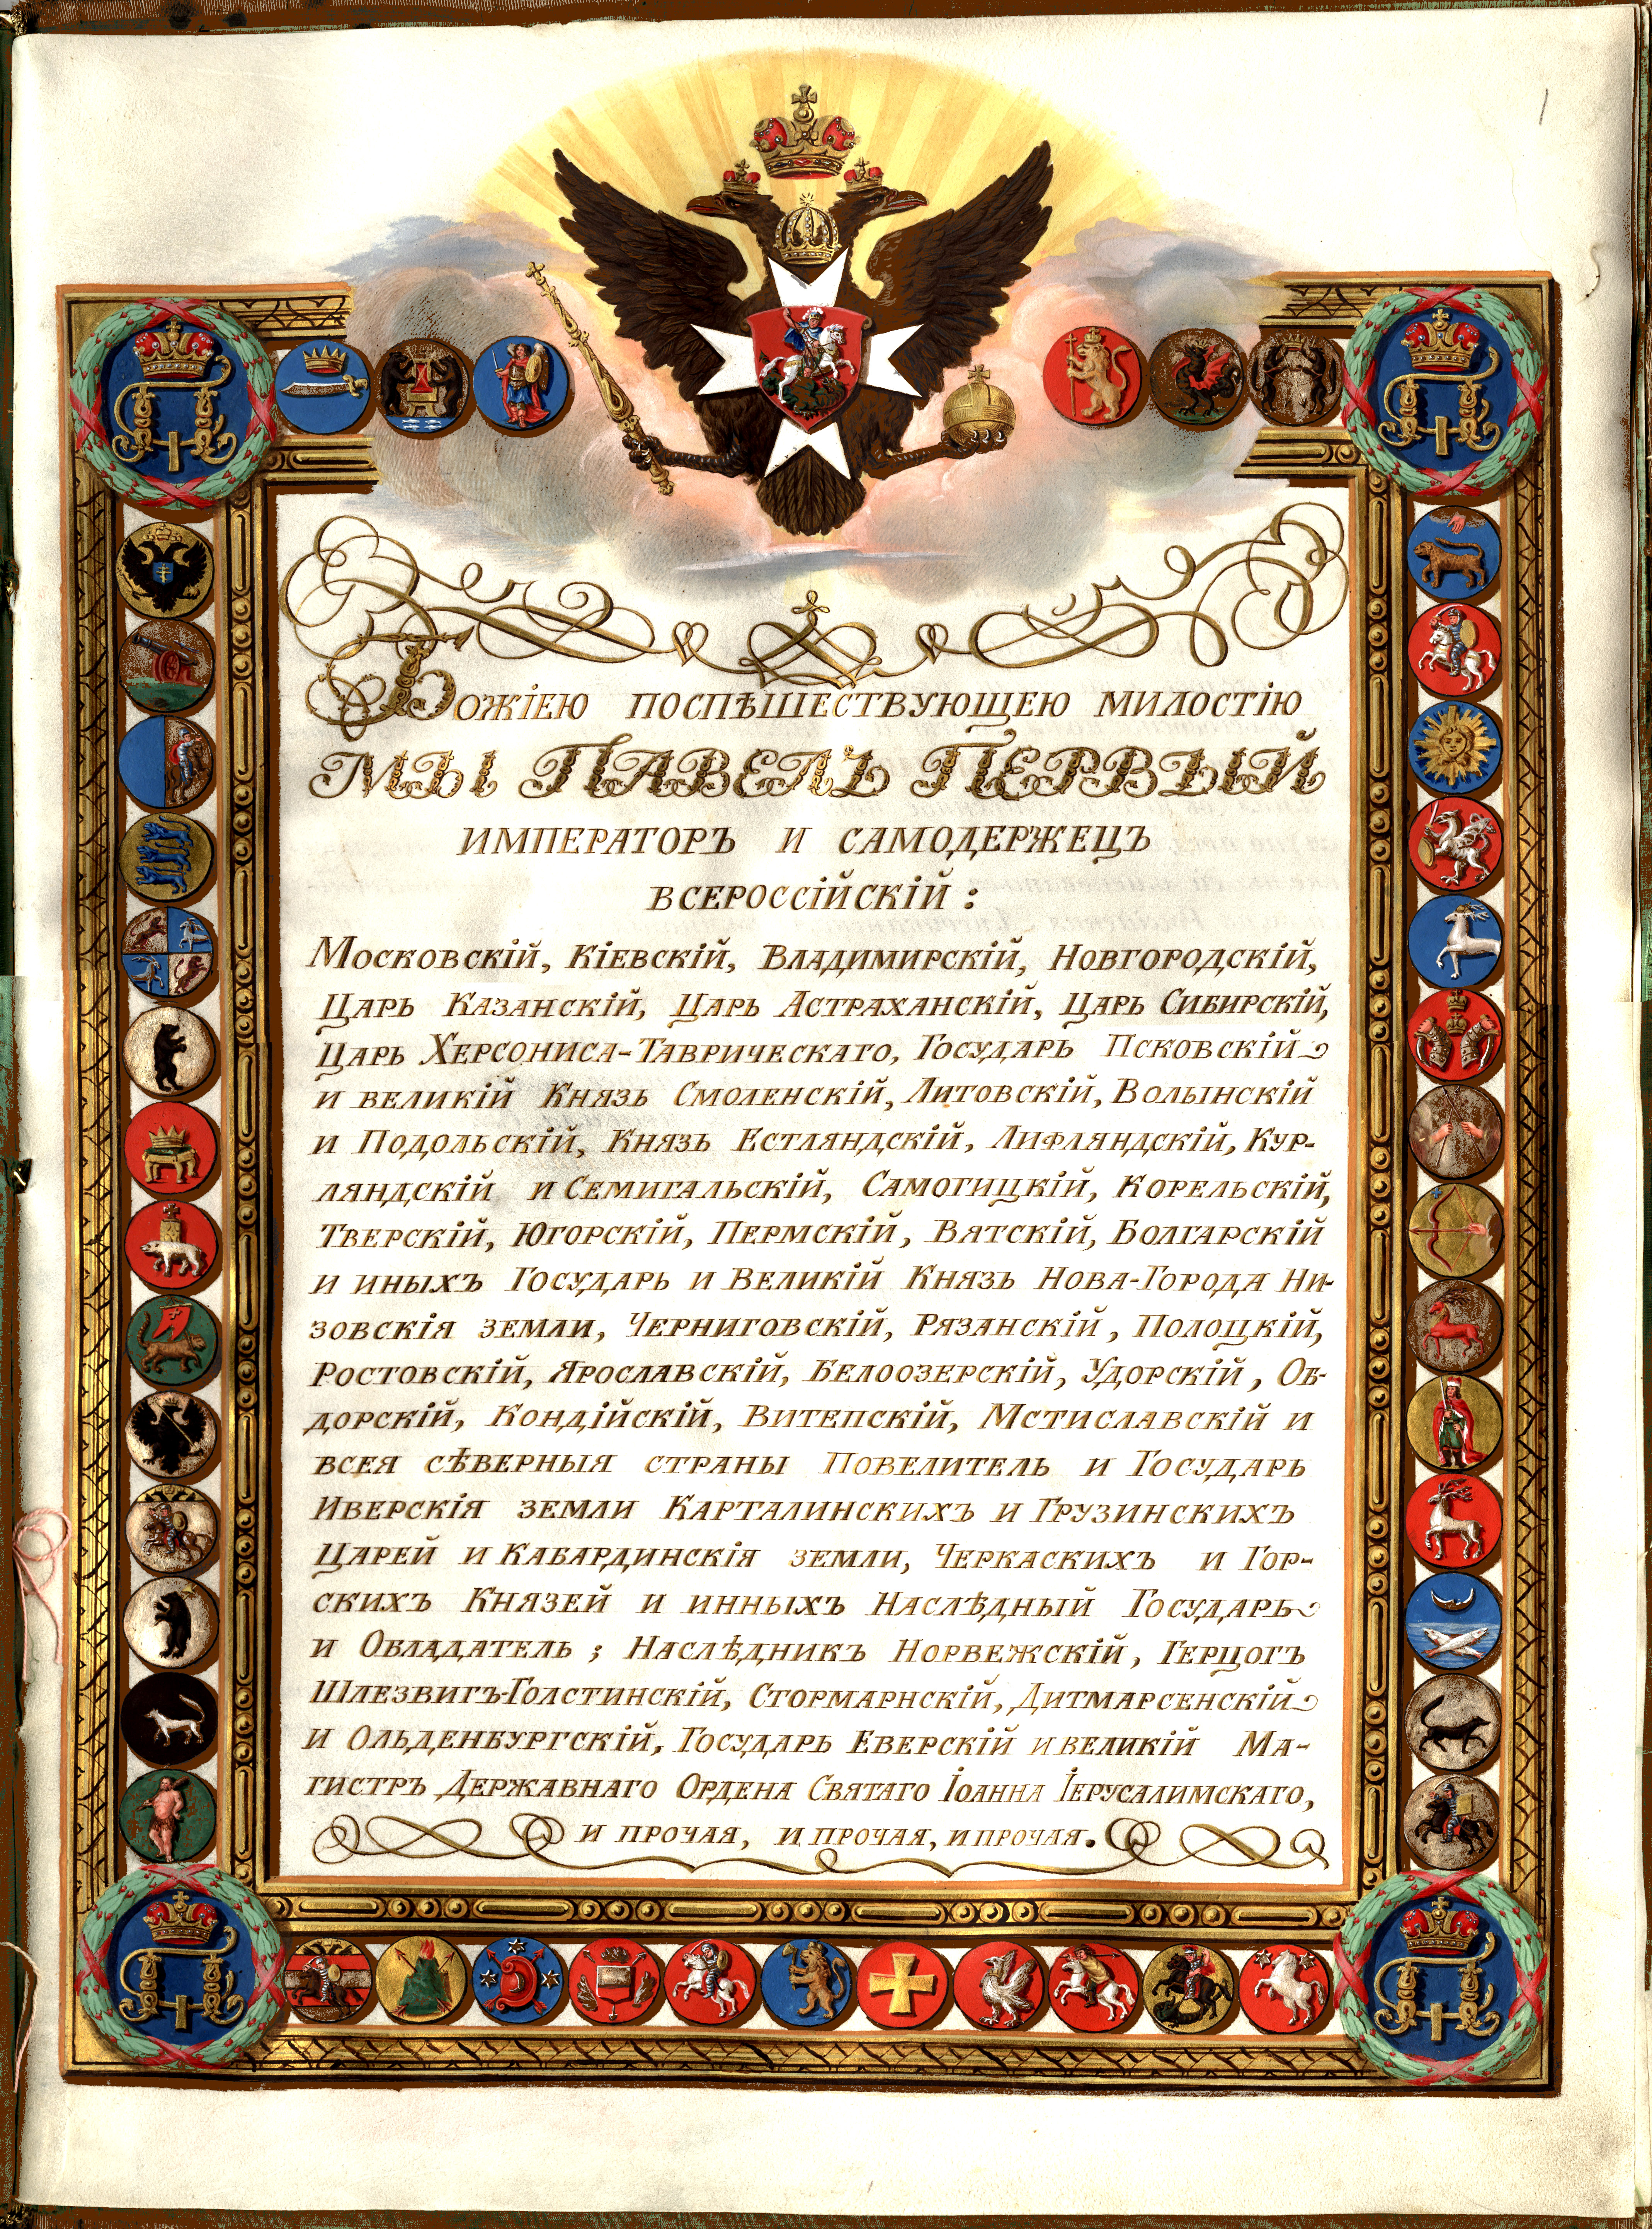 1
Божіею поспѣшествующею милостію
МЫ ПАВЕЛЪ ПЕРВЫЙ
ИМПЕРАТОРЪ И САМОДЕРЖЕЦЪ
ВСЕРОССІЙСКІЙ:
Московскій, Кіевскій, Владимирскій, Новгородскій,
Царь Казанскій, Царь Астраханскій, Царь Сибирскій,
Царь Херсониса-Таврическаго, Государь Псковскій
и великій Князь Смоленскій, Литовскій, Волынскій
и Подольскій, Князь Естляндскій, Лифляндскій, Кур-
ляндскій и Семигальскій, Самогицкій, Корельскій,
Тверскій, Югорскій, Пермскій, Вятскій, Болгарскій
и иныхъ Государь и Великій Князь Нова-Города Ни-
зовскія земли, Черниговскій, Рязанскій, Полоцкій,
Ростовскій, Ярославскій, Белоозерскій, Удорскій, Об-
дорскій, Кондійскій, Витепскій, Мстиславскій и
всея сѣверныя страны Повелитель и Государь
Иверскія земли Карталинскихъ и Грузинскихъ
Царей и Кабардинскія земли, Черкаскихъ и Гор-
скихъ Князей и инныхъ Наслѣдный Государь
и Обладатель; Наслѣдникъ Норвежскій, Герцогъ
Шлезвигъ-Голстинскій, Стормарнскій, Дитмарсенскій
и Ольденбургскій, Государь Еверскій и великій Ма-
гистръ Державнаго Ордена Святаго Іоанна Іерусалимскаго,
и прочая, и прочая, и прочая.